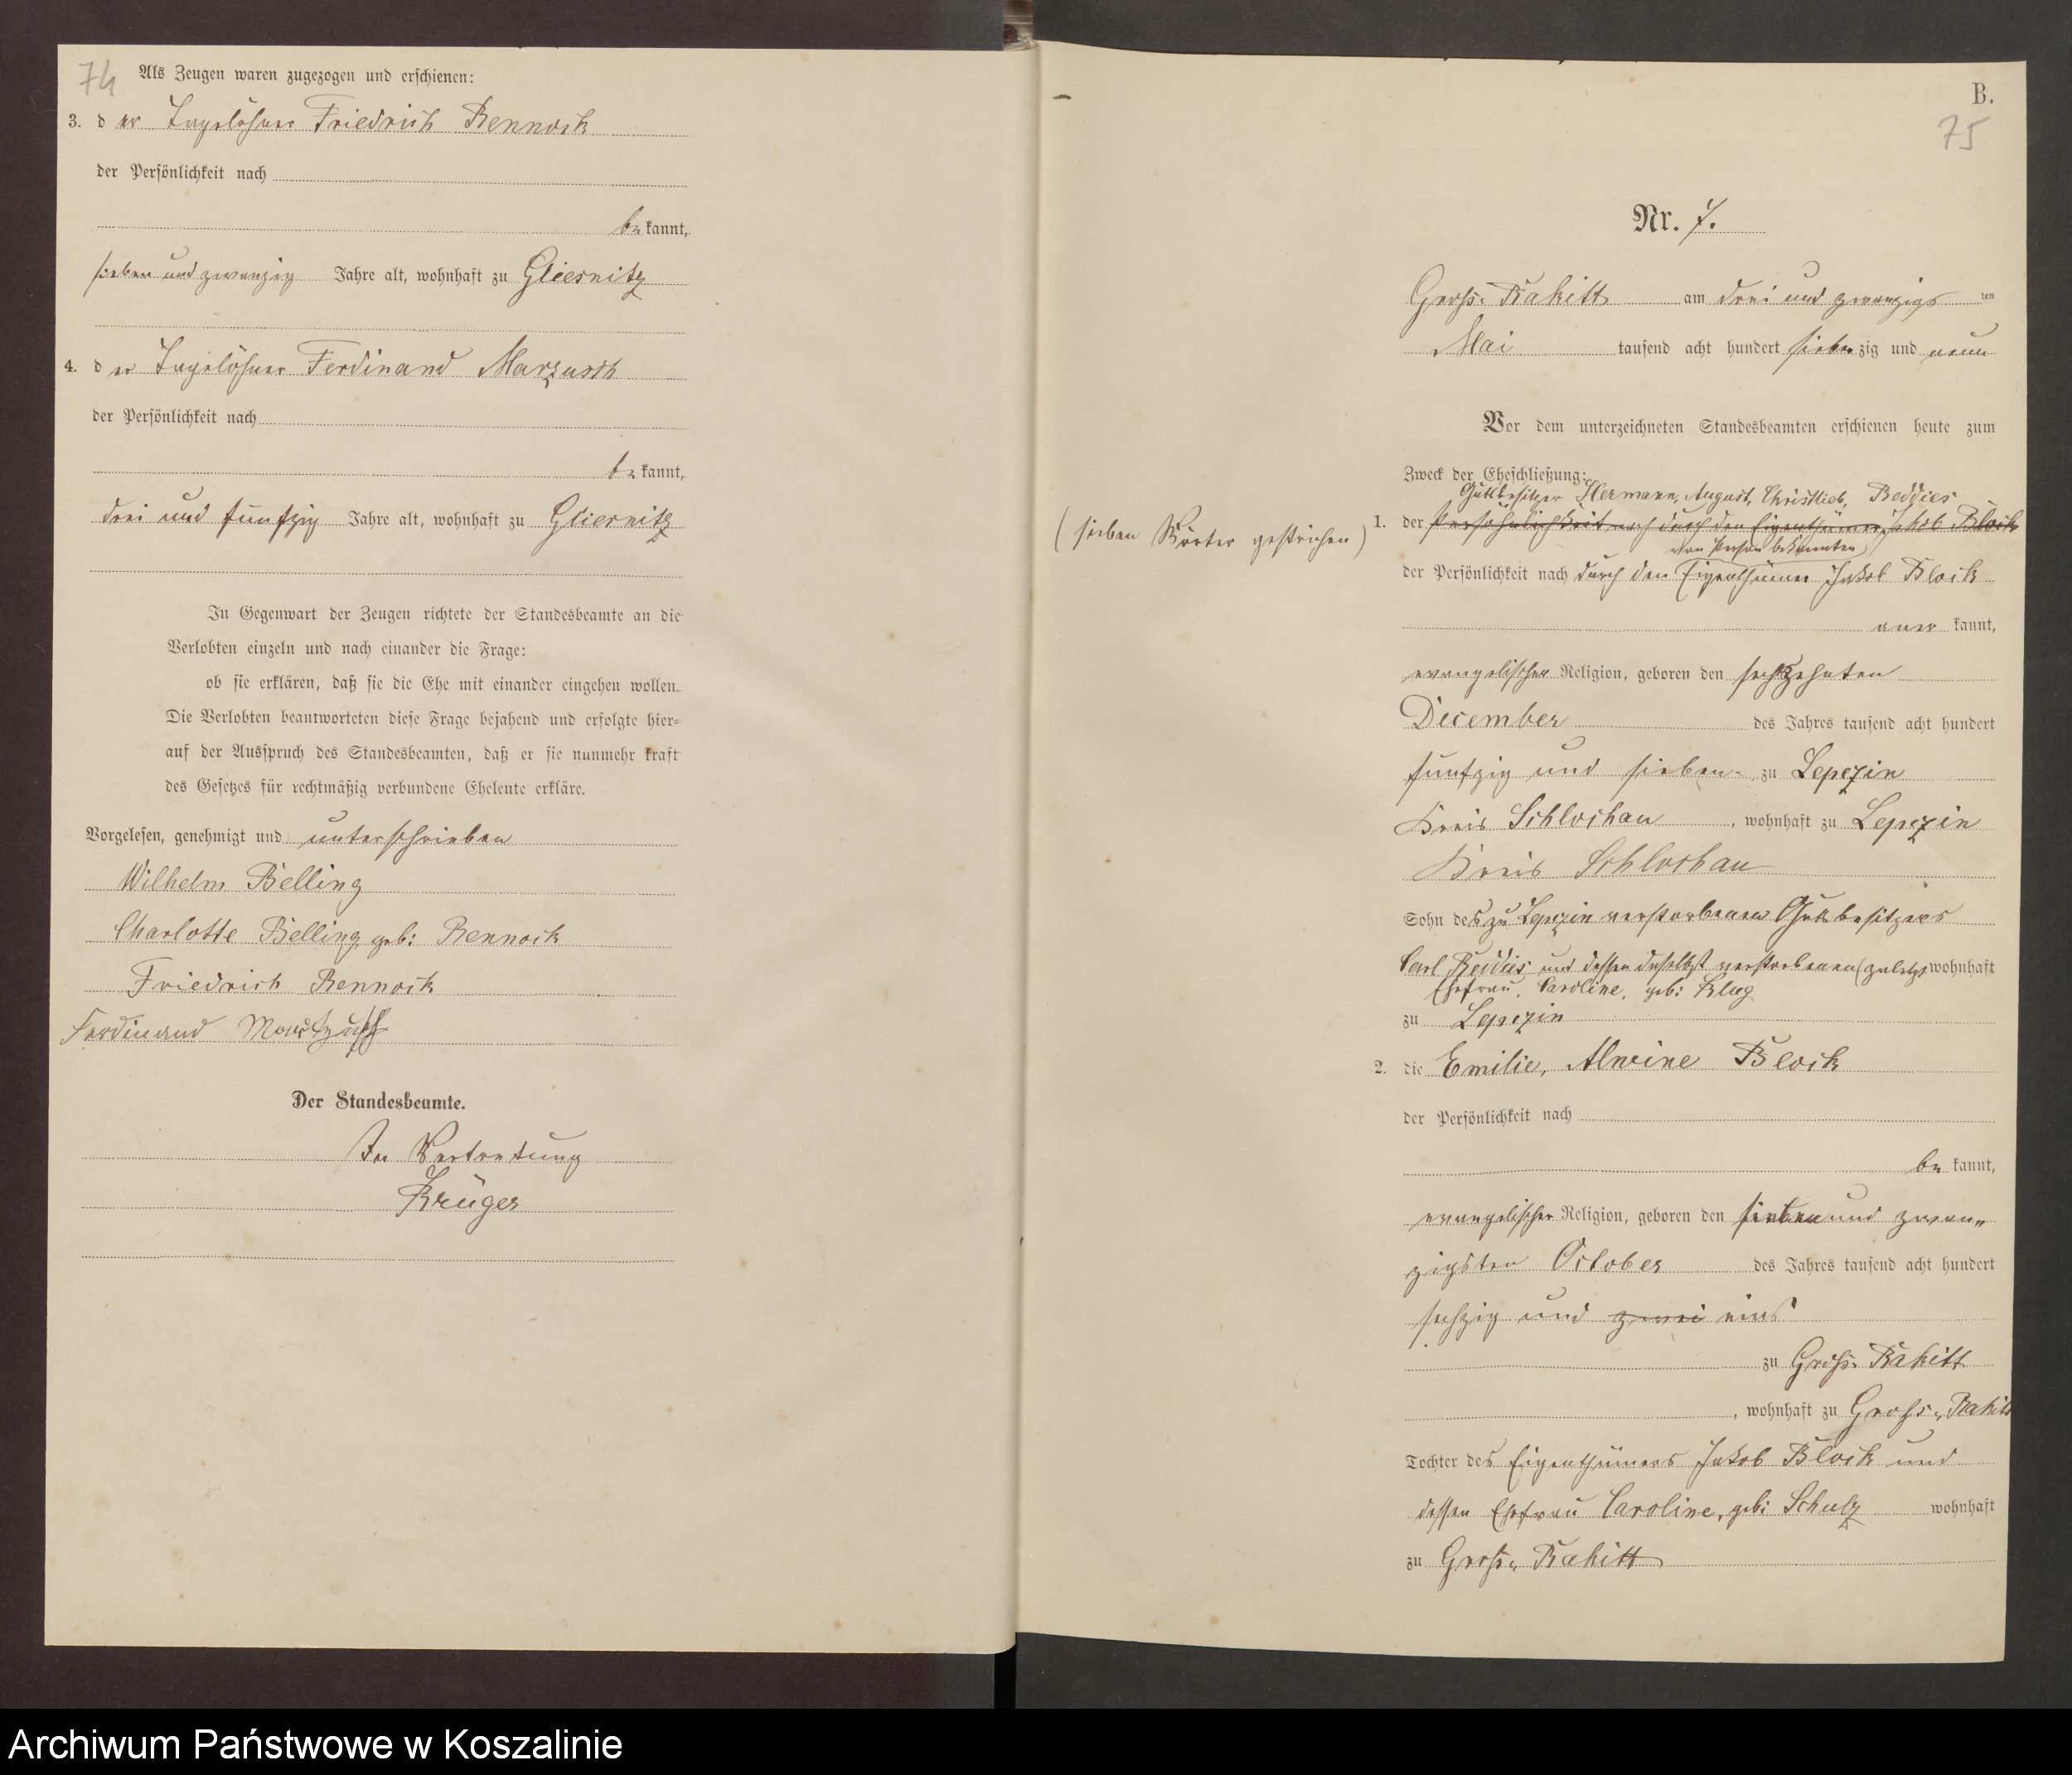 74
Als Zeugen waren zugezogen und erschienen:
3. der Tagelöhner Friedrich Rennock
der Persönlichkeit nach
bekannt,
sieben und zwanzig Jahre alt, wohnhaft zu Gliesnitz
4. der Tagelöhner Ferdinand Marzusch
der Persönlichkeit nach
bekannt,
drei und funfzig Jahre alt, wohnhaft zu Gliesnitz
In Gegenwart der Zeugen richtete der Standesbeamte an die
Verlobten einzeln und nach einander die Frage:
ob sie erklären, daß sie die Ehe mit einander eingehen wollen.
Die Verlobten beantworteten diese Frage bejahend und erfolgte hier=
auf der Ausspruch des Standesbeamten, daß er sie nunmehr kraft
des Gesetzes für rechtmäßig verbundene Eheleute erkläre.
Vorgelesen, genehmigt und unterschrieben
Wilhelm Belling
Charlotte Belling geb: Rennock
Friedrich Rennock
Ferdinand
Der Standesbeamte.
In Vertretung
Krüger
B.
75
Nr. 7.
Gross-Rakitt am drei und zwanzigsten
Mai tausend acht hundert siebenzig und neun
Vor dem unterzeichneten Standesbeamten erschienen heute zum
Zweck der Eheschließung:
Gutsbesitzer Hermann, August, Christlieb, Beddies
(sieben Wörter gestrichen)
1. der Persöhnlichkeit nach durch den Eigenthümer Jakob Block
von Person bekannten
der Persönlichkeit nach durch den Eigenthümer Jakob Block
anerkannt,
evangelischer Religion, geboren den sechszehnten
December des Jahres tausend acht hundert
funfzig und sieben- zu Lepezin
Kreis Schlochau, wohnhaft zu Lepezin
Kreis Schlochau
Sohn des zu Lepezin verstorbenen Gutsbesitzers
Carl Beddies und dessen daselbst verstorbenen (zuletzt wohnhaft
Ehefrau, Caroline, geb: Klug
zu Lepezin
2. die Emilie, Alwine Block
der Persönlichkeit nach
bekannt,
evangelischer Religion, geboren den sieben und zwan„
zigsten October des Jahres tausend acht hundert
sechzig und zwei eins
zu Gross-Rakitt
, wohnhaft zu Gross„Rakitt
Tochter des Eigenthümers Jakob Block und
dessen Ehefrau Caroline, geb: Schulz wohnhaft
zu Gross„Rakitt
Archiwum Państwowe w Koszalinie